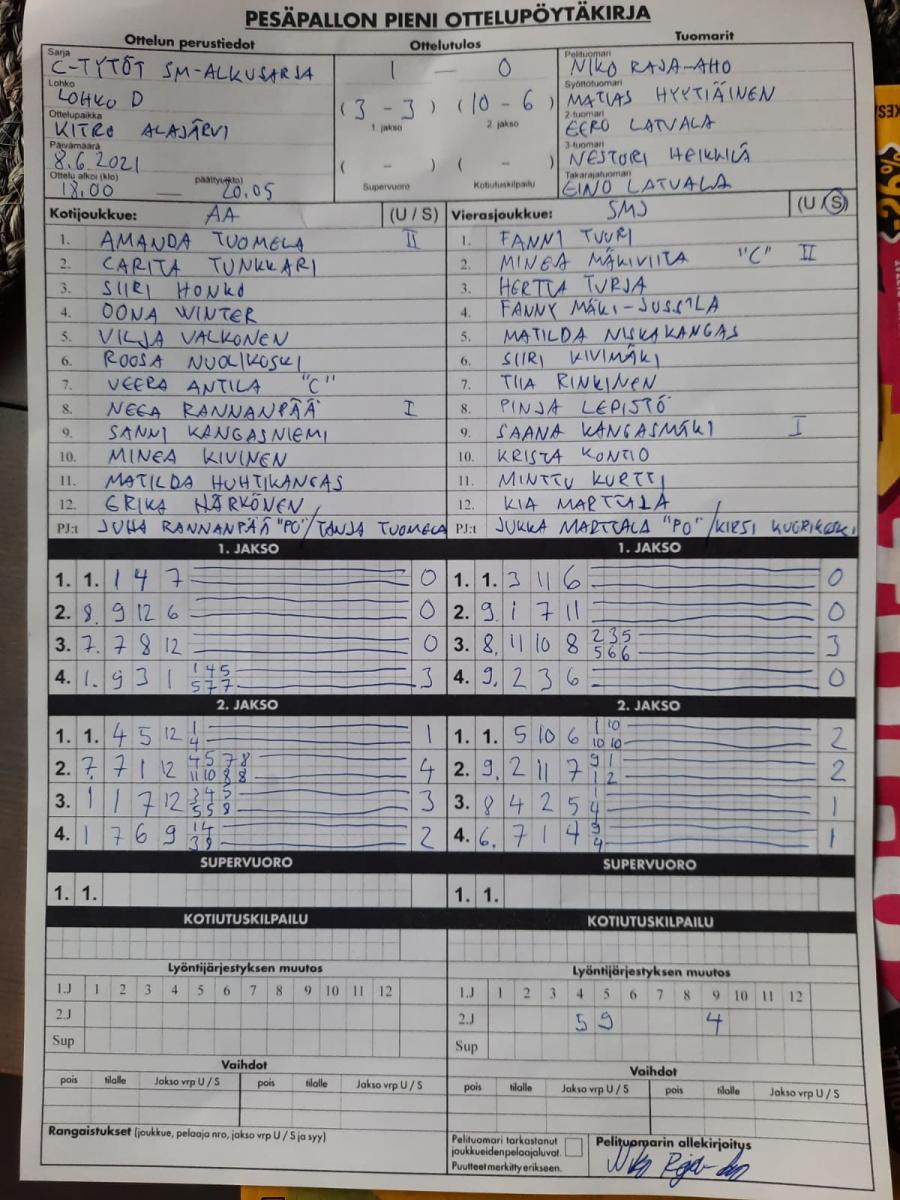 PESÄPALLON PIENI OTTELUPÖYTÄKIRJA
Ottelun perustiedot Ottelutulos Tuomarit
Sarja
C-TYTÖT SM-ALKUSARJA
Lohko
LOHKO D
Ottelupaikka
KITRO ALAJÄRVI
Päivämäärä
8.6.2021
Ottelu alkoi (klo) päättyi(klo)
18.00 — 20.05
1 — 0
(3 - 3) (10 - 6)
1. jakso 2. jakso
( - ) ( - )
Supervuoro Kotiutuskilpailu
Pelituomari
NIKO RAJA-AHO
Syöttötuomari
MATIAS HYYTIÄINEN
2-tuomari
EERO LATVALA
3-tuomari
NESTORI HEIKKILÄ
Takarajatuomari
EINO LATVALA
Kotijoukkue: AA (U / S)
1. AMANDA TUOMELA II
2. CARITA TUNKKARI
3. SIIRI HONKO
4. OONA WINTER
5. VILJA VALKONEN
6. ROOSA NUOLIKOSKI
7. VEERA ANTILA "C"
8. NEEA RANNANPÄÄ I
9. SANNI KANGASNIEMI
10. MINEA KIVINEN
11. MATILDA HUHTIKANGAS
12. ERIKA HÄRKÖNEN
PJ:t JUHA RANNANPÄÄ "PO"/TANJA TUOMELA
Vierasjoukkue: SMJ (U / S)
1. FANNI TUURI
2. MINEA MÄKIVIITA "C" II
3. HERTTA TURJA
4. FANNY MÄKI-JUSSILA
5. MATILDA NISKAKANGAS
6. SIIRI KIVIMÄKI
7. TIIA RINKINEN
8. PINJA LEPISTÖ
9. SAANA KANGASMÄKI I
10. KRISTA KONTIO
11. MINTTU KURTTI
12. KIA MARTTALA
PJ:t JUKKA MARTTALA "PO"/KIRSI
1. JAKSO
1. 1. 1 4 7 0
2. 8. 9 12 6 0
3. 7. 7 8 12 0
4. 1. 9 3 1 1 4 5 3
5 7 7
1. JAKSO
1. 1. 3 11 6 0
2. 9. 1 7 11 0
3. 8. 11 10 8 2 3 5 3
5 6 6
4. 9. 2 3 6 0
2. JAKSO
1. 1. 4 5 12 1 1
4
2. 7. 7 1 12 4 5 7 8 4
11 10 8 8
3. 1 1 7 12 3 4 5 3
5 5 8
4. 1 7 6 9 1 4 2
3 9
2. JAKSO
1. 1. 5 10 6 1 10 2
10 10
2. 9. 2 11 7 9 1 2
1 2
3. 8 4 2 5 1 1
4
4. 6. 7 1 4 9 1
4
SUPERVUORO SUPERVUORO
1. 1. 1. 1.
KOTIUTUSKILPAILU KOTIUTUSKILPAILU
Lyöntijärjestyksen muutos
1.J 1 2 3 4 5 6 7 8 9 10 11 12
2.J
Sup
Lyöntijärjestyksen muutos
1.J 1 2 3 4 5 6 7 8 9 10 11 12
2.J 5 9 4
Sup
Vaihdot
pois tilalle Jakso vrp U / S pois tilalle Jakso vrp U / S
Vaihdot
pois tilalle Jakso vrp U / S pois tilalle Jakso vrp U / S
Rangaistukset (joukkue, pelaaja nro, jakso vrp U / S ja syy)
Pelituomari tarkastanut
joukkueidenpelaajaluvat.
Puutteet merkitty erikseen.
Pelituomarin allekirjoitys